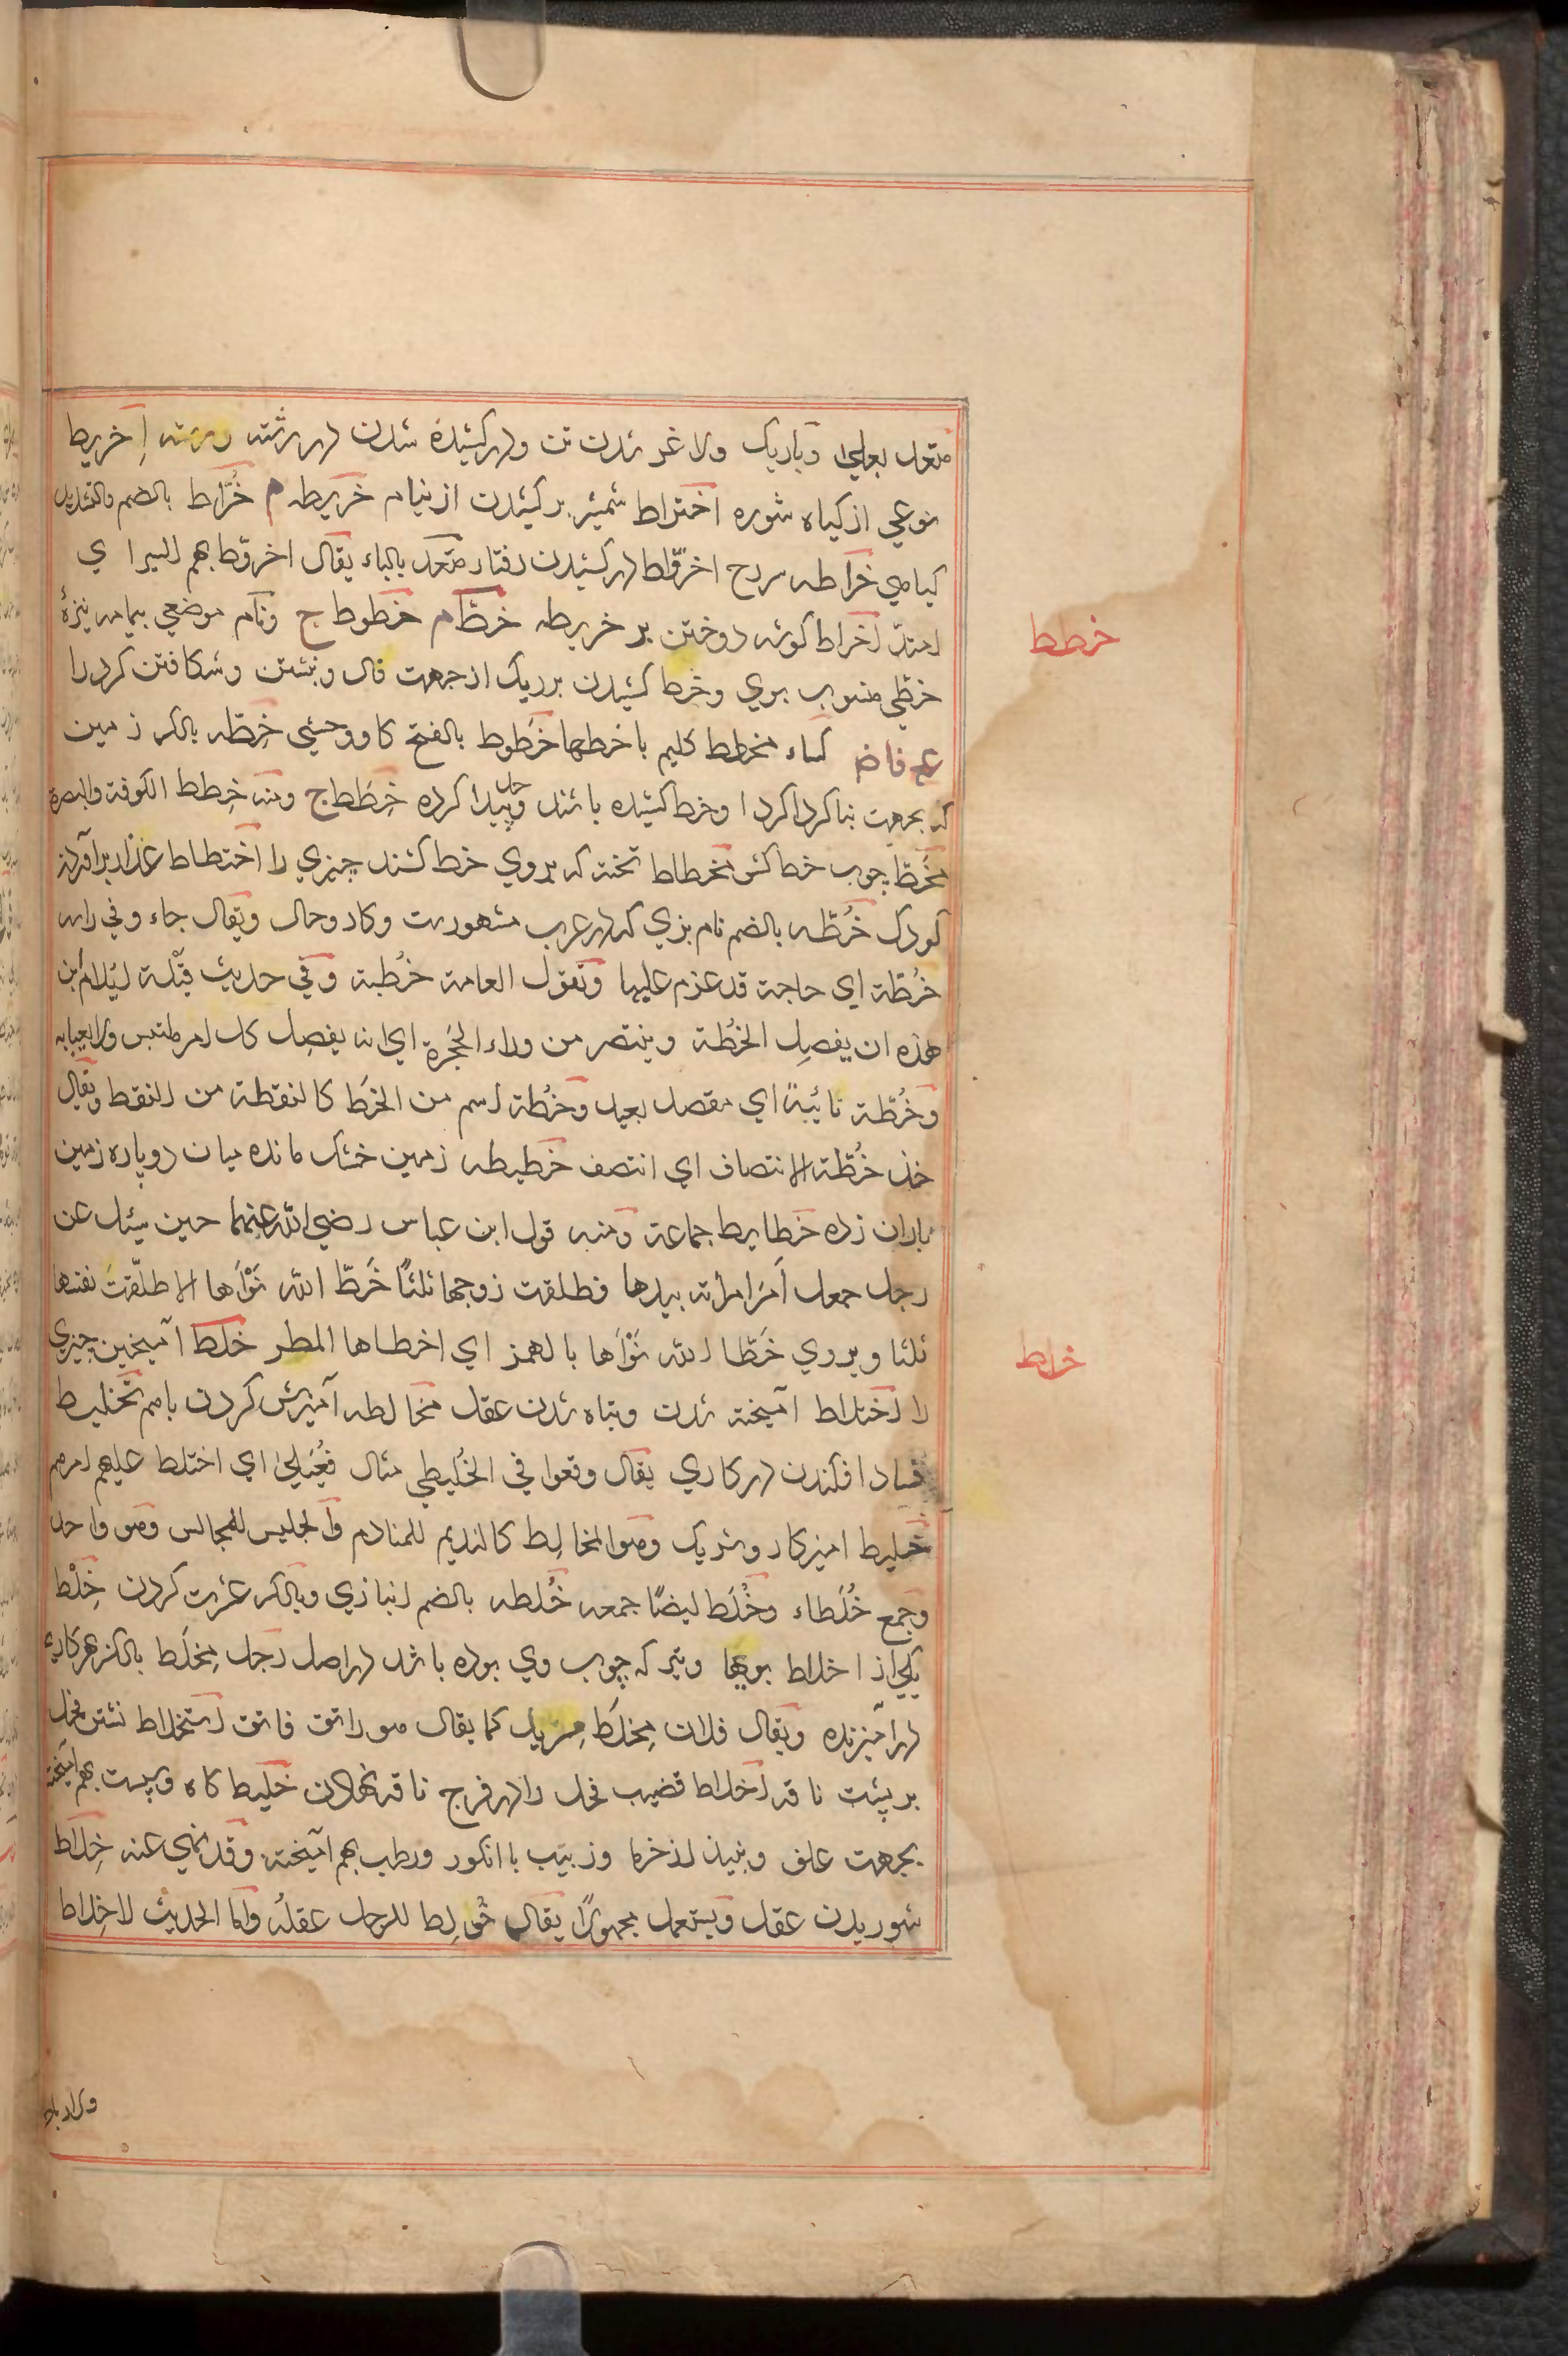 متعد بعلی وباریک ولاغر شدن تن ودرکشیده شدن در رشته ومنه اِخریط
نوعي از کیاه شوره اختراط شمشیر برکشیدن از نیام خریطه م خُرّاط بالضم والتشدید
کیاهي خراطه مردح اخروّاط درکشیدن رفتار متعد بالباء یقال اخروّط بهم السیر ا ي
امتدّ اخراط کوشه دوختن بر خریطه خطّ م خطوط ج ونام موضعي بیمامه نیزهٔ
خطّي منسوب بوي وخط کشیدن بر ریک از جهت فال ونبشتن وشکافتن کرد را
ع فاض کساء مخطط کلیم با خطها خَطوط بالفتح کاو وحشي خِطّه بالکسر زمین
که بجهت بنا کردا کرد ا وخط کشیده باشند وحد پیدا کرده خِطَط ج ومنه خِطط الکوفة والبصرة
مِخَطّ چوب خط کش مخطاط تخته که بروي خط کشند چیزي را اختطاط عذار برآوردن
کودک خُطّه بالضم نام بزي که در عرب مشهورست وکار وحال ویقال جاء وفي راسه
خُطّة اي حاجة قد عزم علیها وتقول العامة خُطبة وفي حدیث قَیْلة ایلام ابن
هذه ان یفصِل الخُطّة وینتصر من وراء الحُجَزة اي انه یفصِل کل امر ملتبس ولا یعیا به
وخُطّة نائیةً اي مقصد بعید وخُطّة اسم من الخَط کالنقطة من النقط ویقال
خذ خُطّة الانتصاف اي انتصف خطیطه زمین خشک مانده میان دو پاره زمین
باران زده خطایط جماعة ومنه قول ابن عباس رضي الله عنهما حین سئل عن
رجل جعل اَمرَ امراته بیدها فطلقت زوجها ثلثًا خَطّ الله نَوْاَها الا طلّقتَ نفسَها
ثلثا ویروي خَطّا الله نَوْاَها بالهمز اي اخطاها المطر خلط آمیختن چیزي
را اختلاط آمیخته شدن وتباه شدن عقل مخالطه آمیزش کردن باهم تخلیط
فساد افکندن در کاري یقال وقعوا في الخُلیطي مثال فُعَیلی اي اختلط علیهم امرهم
خلیط امیزکار وشریک وهوا لمخالِط کالندیم للمنادم والجلیس للمجالس وهو واحد
وجمع خُلَطاء وخُلُط ایضًا جمعه خُلطه بالضم انبازي وبالکسر عشرت کردن خِلْط
یکي از اخلاط بویها وتیر که چوب وي بوده باشد در اصل رجل مِخلَط بالکسر هر کاریء
درآمیزنده ویقال فلان مِخلَط مِزیل کما یقال هو راتق فاتق استخلاط نشتن فحل
بر پشت ناقه اخلاط قضیب فحل را در فرج ناقه نهادن خلیط کاه وسپست بهم آمیخته
بجهت علف ونبیذ از خرما وزبیب با انکور ورطب بهم آمیخته وقد نهي عنه خِلاط
شوریدن عقل ویستعمل مجهولاً یقال خُولِط للرجل عقلهُ واما الحدیث لا خِلاط
خطط
خلط